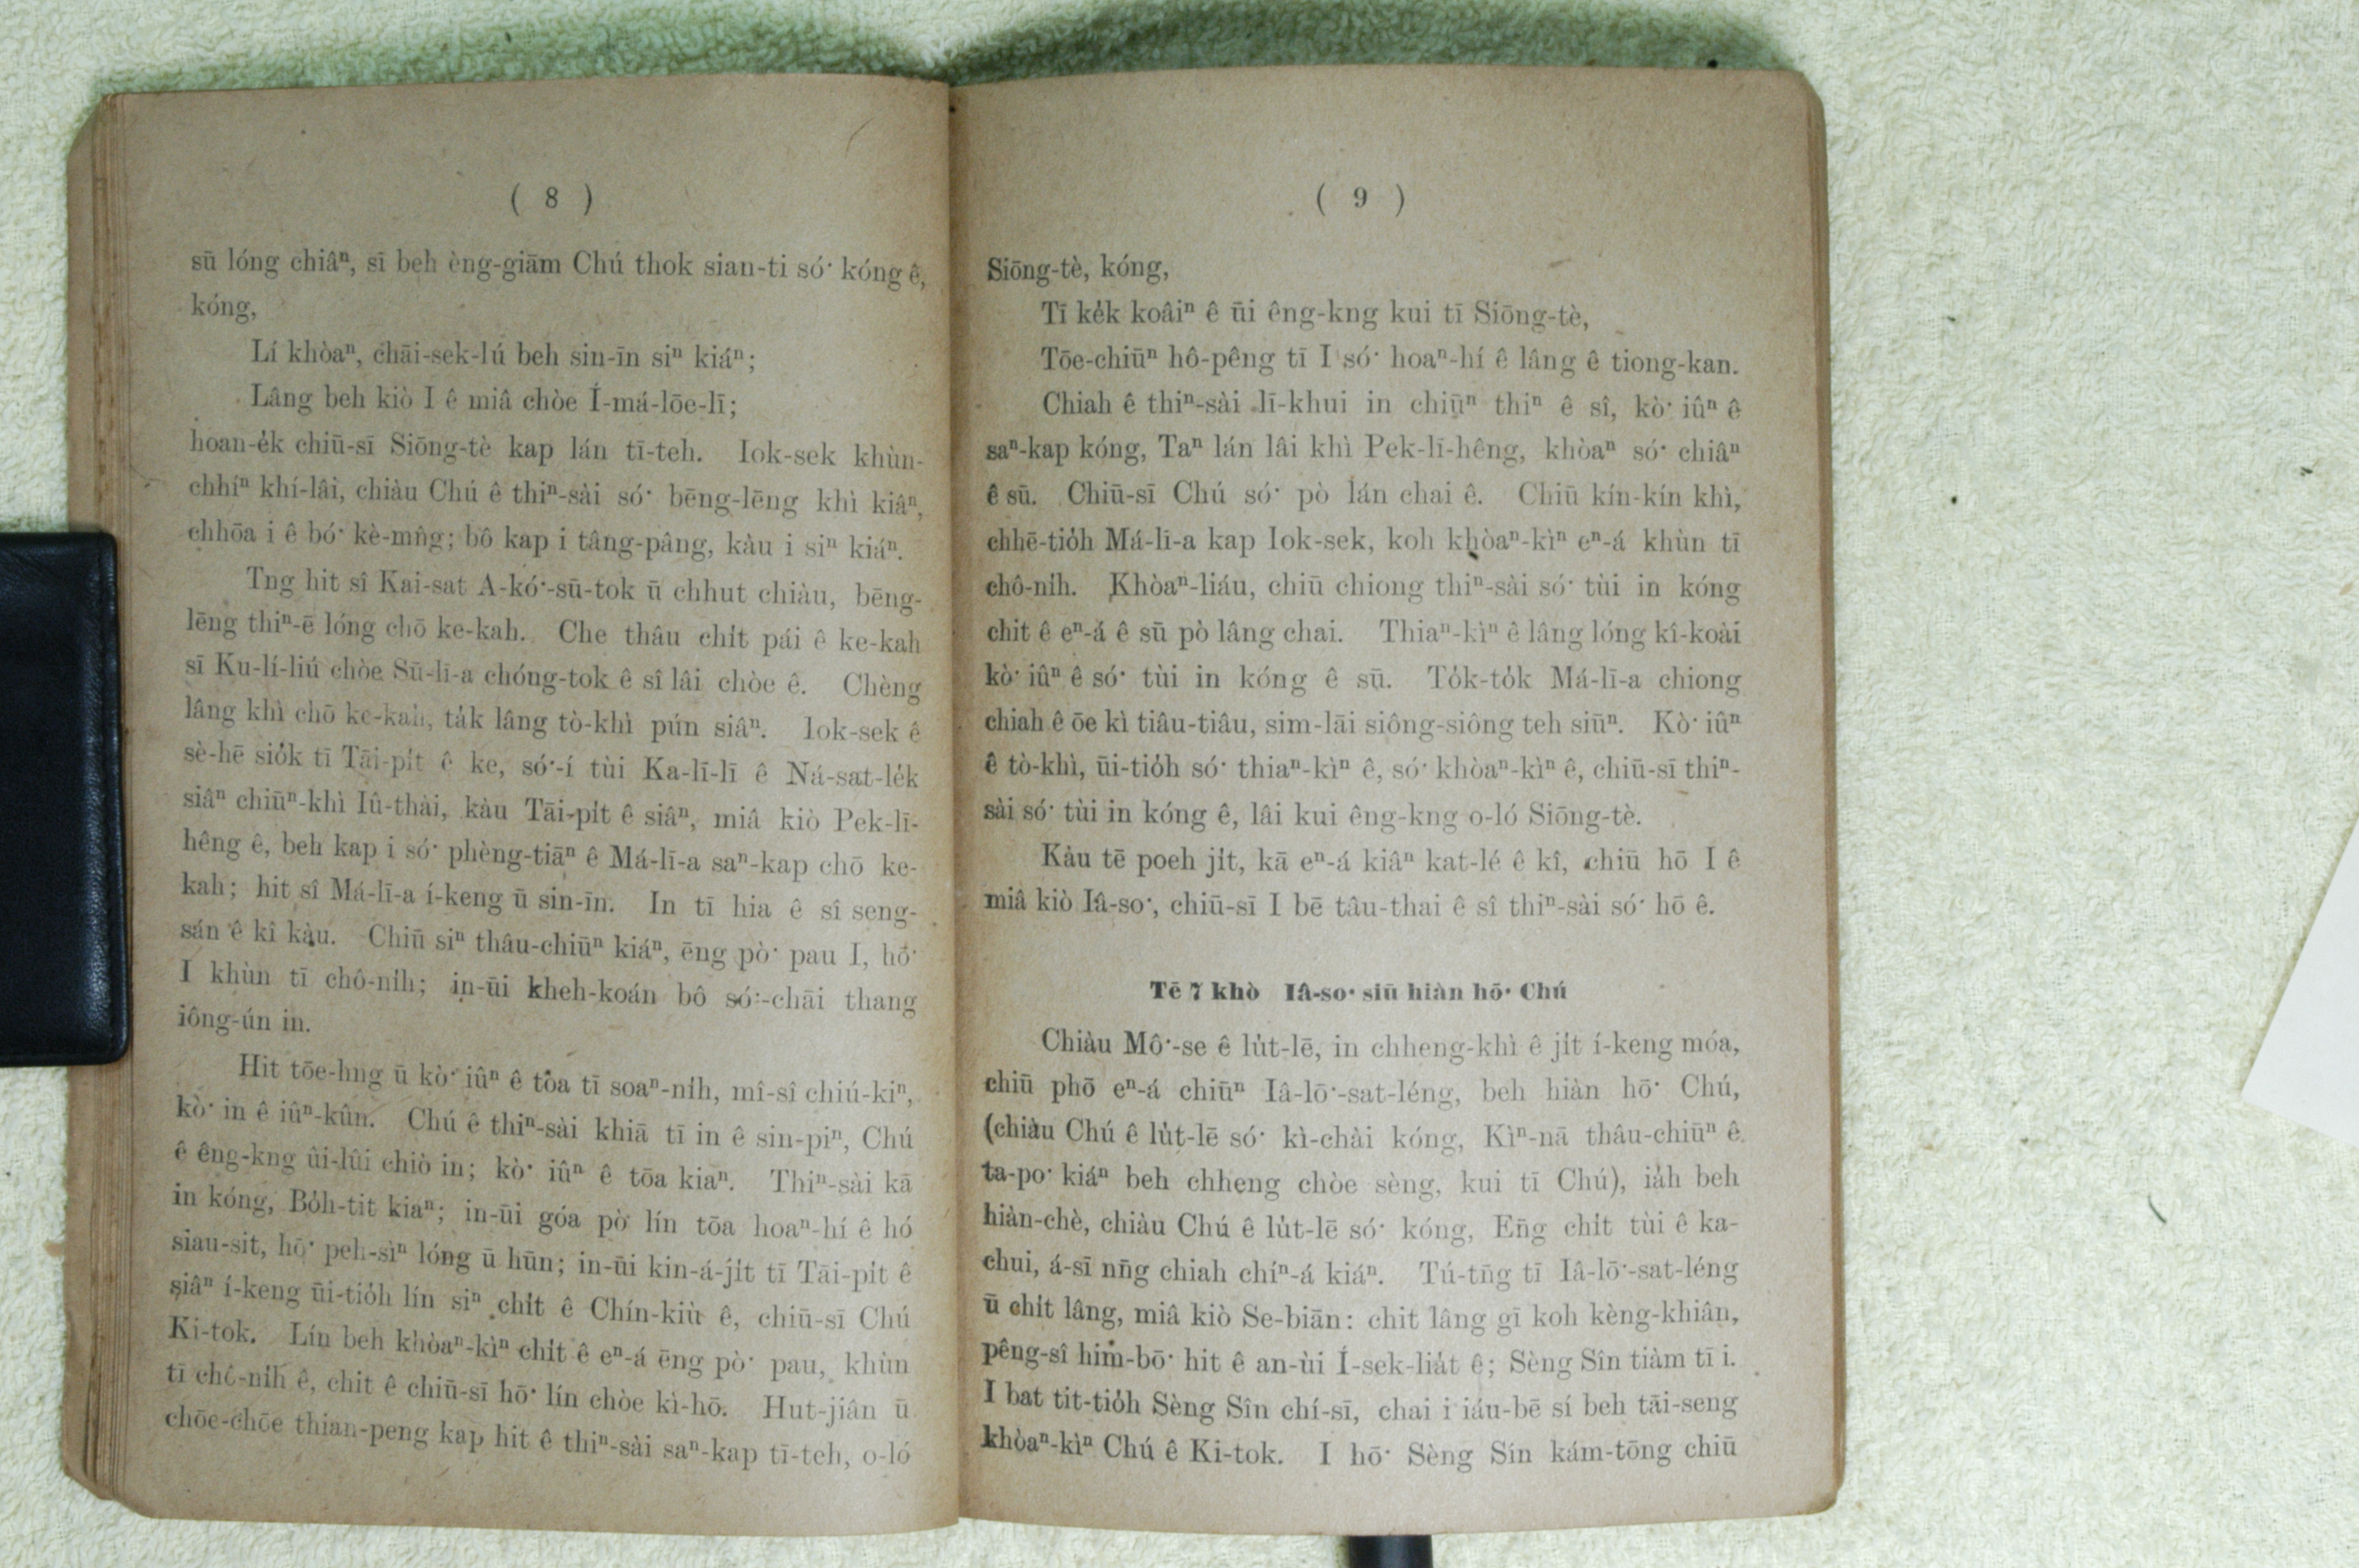 ( 8 )
sū lóng chiâⁿ, sī beh èng-giām Chú thok sian-ti só͘ kóng ê,
kóng,
Lí khòaⁿ, chāi-sek-lú beh sin-īn siⁿ kiáⁿ;
Lâng beh kiò I ê miâ chòe Í-má-lōe-lī;
hoan-e̍k chiū-sī Siōng-tè kap lán tī-teh. Iok-sek khùn-
chhíⁿ khí-lâi, chiàu Chú ê thiⁿ-sài só͘ bēng-lēng khì kiâⁿ,
chhōa i ê bó͘ kè-mn̂g; bô kap i tâng-pâng, kàu i siⁿ kiáⁿ.
Tng hit sî Kai-sat A-kó͘-sū-tok ū chhut chiàu, bēng-
lēng thiⁿ-ē lóng chō ke-kah. Che thâu chi̍t pái ê ke-kah
sī Ku-lí-liú chòe Sū-lī-a chóng-tok ê sî lâi chòe ê. Chèng
lâng khì chō ke-kah, ta̍k lâng tò-khì pún siâⁿ. Iok-sek ê
sè-hē sio̍k tī Tāi-pi̍t ê ke, só͘-í tùi Ka-lī-lī ê Ná-sat-le̍k
siâⁿ chiūⁿ-khì Iû-thài, kàu Tāi-pi̍t ê siâⁿ, miâ kiò Pek-lī-
hêng ê, beh kap i só͘ phèng-tiāⁿ ê Má-lī-a saⁿ-kap chō ke-
kah; hit sî Má-lī-a í-keng ū sin-īn. In tī hia ê sî seng-
sán ê kî kàu. Chiū siⁿ thâu-chiūⁿ kiáⁿ, ēng pò͘ pau I, hō͘
I khùn tī chô-ni̍h; in-ūi kheh-koán bô só͘-chāi thang
iông-ún in.
Hit tōe-hng ū kò͘ iûⁿ ê tòa tī soaⁿ-ni̍h, mî-sî chiú-kiⁿ,
kò͘ in ê iûⁿ-kûn. Chú ê thiⁿ-sài khiā tī in ê sin-piⁿ, Chú
ê êng-kng ûi-lûi chiò in; kò͘ iûⁿ ê tōa kiaⁿ. Thiⁿ-sài kā
in kóng, Bo̍h-tit kiaⁿ; in-ūi góa pò lín tōa hoaⁿ-hí ê hó
siau-sit, hō͘ peh-sìⁿ lóng ū hūn; in-ūi kin-á-ji̍t tī Tāi-pi̍t ê
siâⁿ í-keng ūi-tio̍h lín siⁿ chi̍t ê Chín-kiù ê, chiū-sī Chú
Ki-tok. Lín beh khòaⁿ-kìⁿ chi̍t ê eⁿ-á ēng pò͘ pau, khùn
tī chô-ni̍h ê, chit ê chiū-sī hō͘ lín chòe kì-hō. Hut-jiân ū
chōe-chōe thian-peng kap hit ê thiⁿ-sài saⁿ-kap tī-teh, o-ló
( 9 )
Siōng-tè, kóng,
Tī ke̍k koâiⁿ ê ūi êng-kng kui tī Siōng-tè,
Tōe-chiūⁿ hô-pêng tī I só͘ hoaⁿ-hí ê lâng ê tiong-kan.
Chiah ê thiⁿ-sài lī-khui in chiūⁿ thiⁿ ê sî, kò͘ iûⁿ ê
saⁿ-kap kóng, Taⁿ lán lâi khì Pek-lī-hêng, khòaⁿ só͘ chiâⁿ
ê sū. Chiū-sī Chú só͘ pò lán chai ê. Chiū kín-kín khì,
chhē-tio̍h Má-lī-a kap Iok-sek, koh khòaⁿ-kìⁿ eⁿ-á khùn tī
chô-ni̍h. Khòaⁿ-liáu, chiū chiong thiⁿ-sài só͘ tùi in kóng
chit ê eⁿ-á ê sū pò lâng chai. Thiaⁿ-kìⁿ ê lâng lóng kî-koài
kò͘ iûⁿ ê só͘ tùi in kóng ê sū. To̍k-to̍k Má-lī-a chiong
chiah ê ōe kì tiâu-tiâu, sim-lāi siông-siông teh siūⁿ. Kò͘ iûⁿ
ê tò-khì, ūi-tio̍h só͘ thiaⁿ-kìⁿ ê, só͘ khòaⁿ-kìⁿ ê, chiū-sī thiⁿ-
sài só͘ tùi in kóng ê, lâi kui êng-kng o-ló Siōng-tè.
Kàu tē poeh ji̍t, kā eⁿ-á kiâⁿ kat-lé ê kî, chiū hō I ê
miâ kiò Iâ-so͘, chiū-sī I bē tâu-thai ê sî thiⁿ-sài só͘ hō ê.
Tē 7 khò Iâ-so͘ siū hiàn hō͘ Chú
Chiàu Mô͘-se ê lu̍t-lē, in chheng-khì ê ji̍t í-keng móa,
chiū phō eⁿ-á chiūⁿ Iâ-lō͘-sat-léng, beh hiàn hō͘ Chú,
(chiàu Chú ê lu̍t-lē só͘ kì-chài kóng, Kìⁿ-nā thâu-chiūⁿ ê
ta-po͘ kiáⁿ beh chheng chòe sèng, kui tī Chú), ia̍h beh
hiàn-chè, chiàu Chú ê lu̍t-lē só͘ kóng, Eng chi̍t tùi ê ka-
chui, á-sī nn̄g chiah chíⁿ-á kiáⁿ. Tú-tn̄g tī Iâ-lō͘-sat-léng
ū chi̍t lâng, miâ kiò Se-biān: chit lâng gī koh kèng-khiân,
pêng-sî him-bō͘ hit ê an-ùi Í-sek-lia̍t ê; Sèng Sîn tiàm tī i.
I bat tit-tio̍h Sèng Sîn chí-sī, chai i iáu-bē sí beh tāi-seng
khòaⁿ-kìⁿ Chú ê Ki-tok. I hō͘ Sèng Sîn kám-tōng chiū